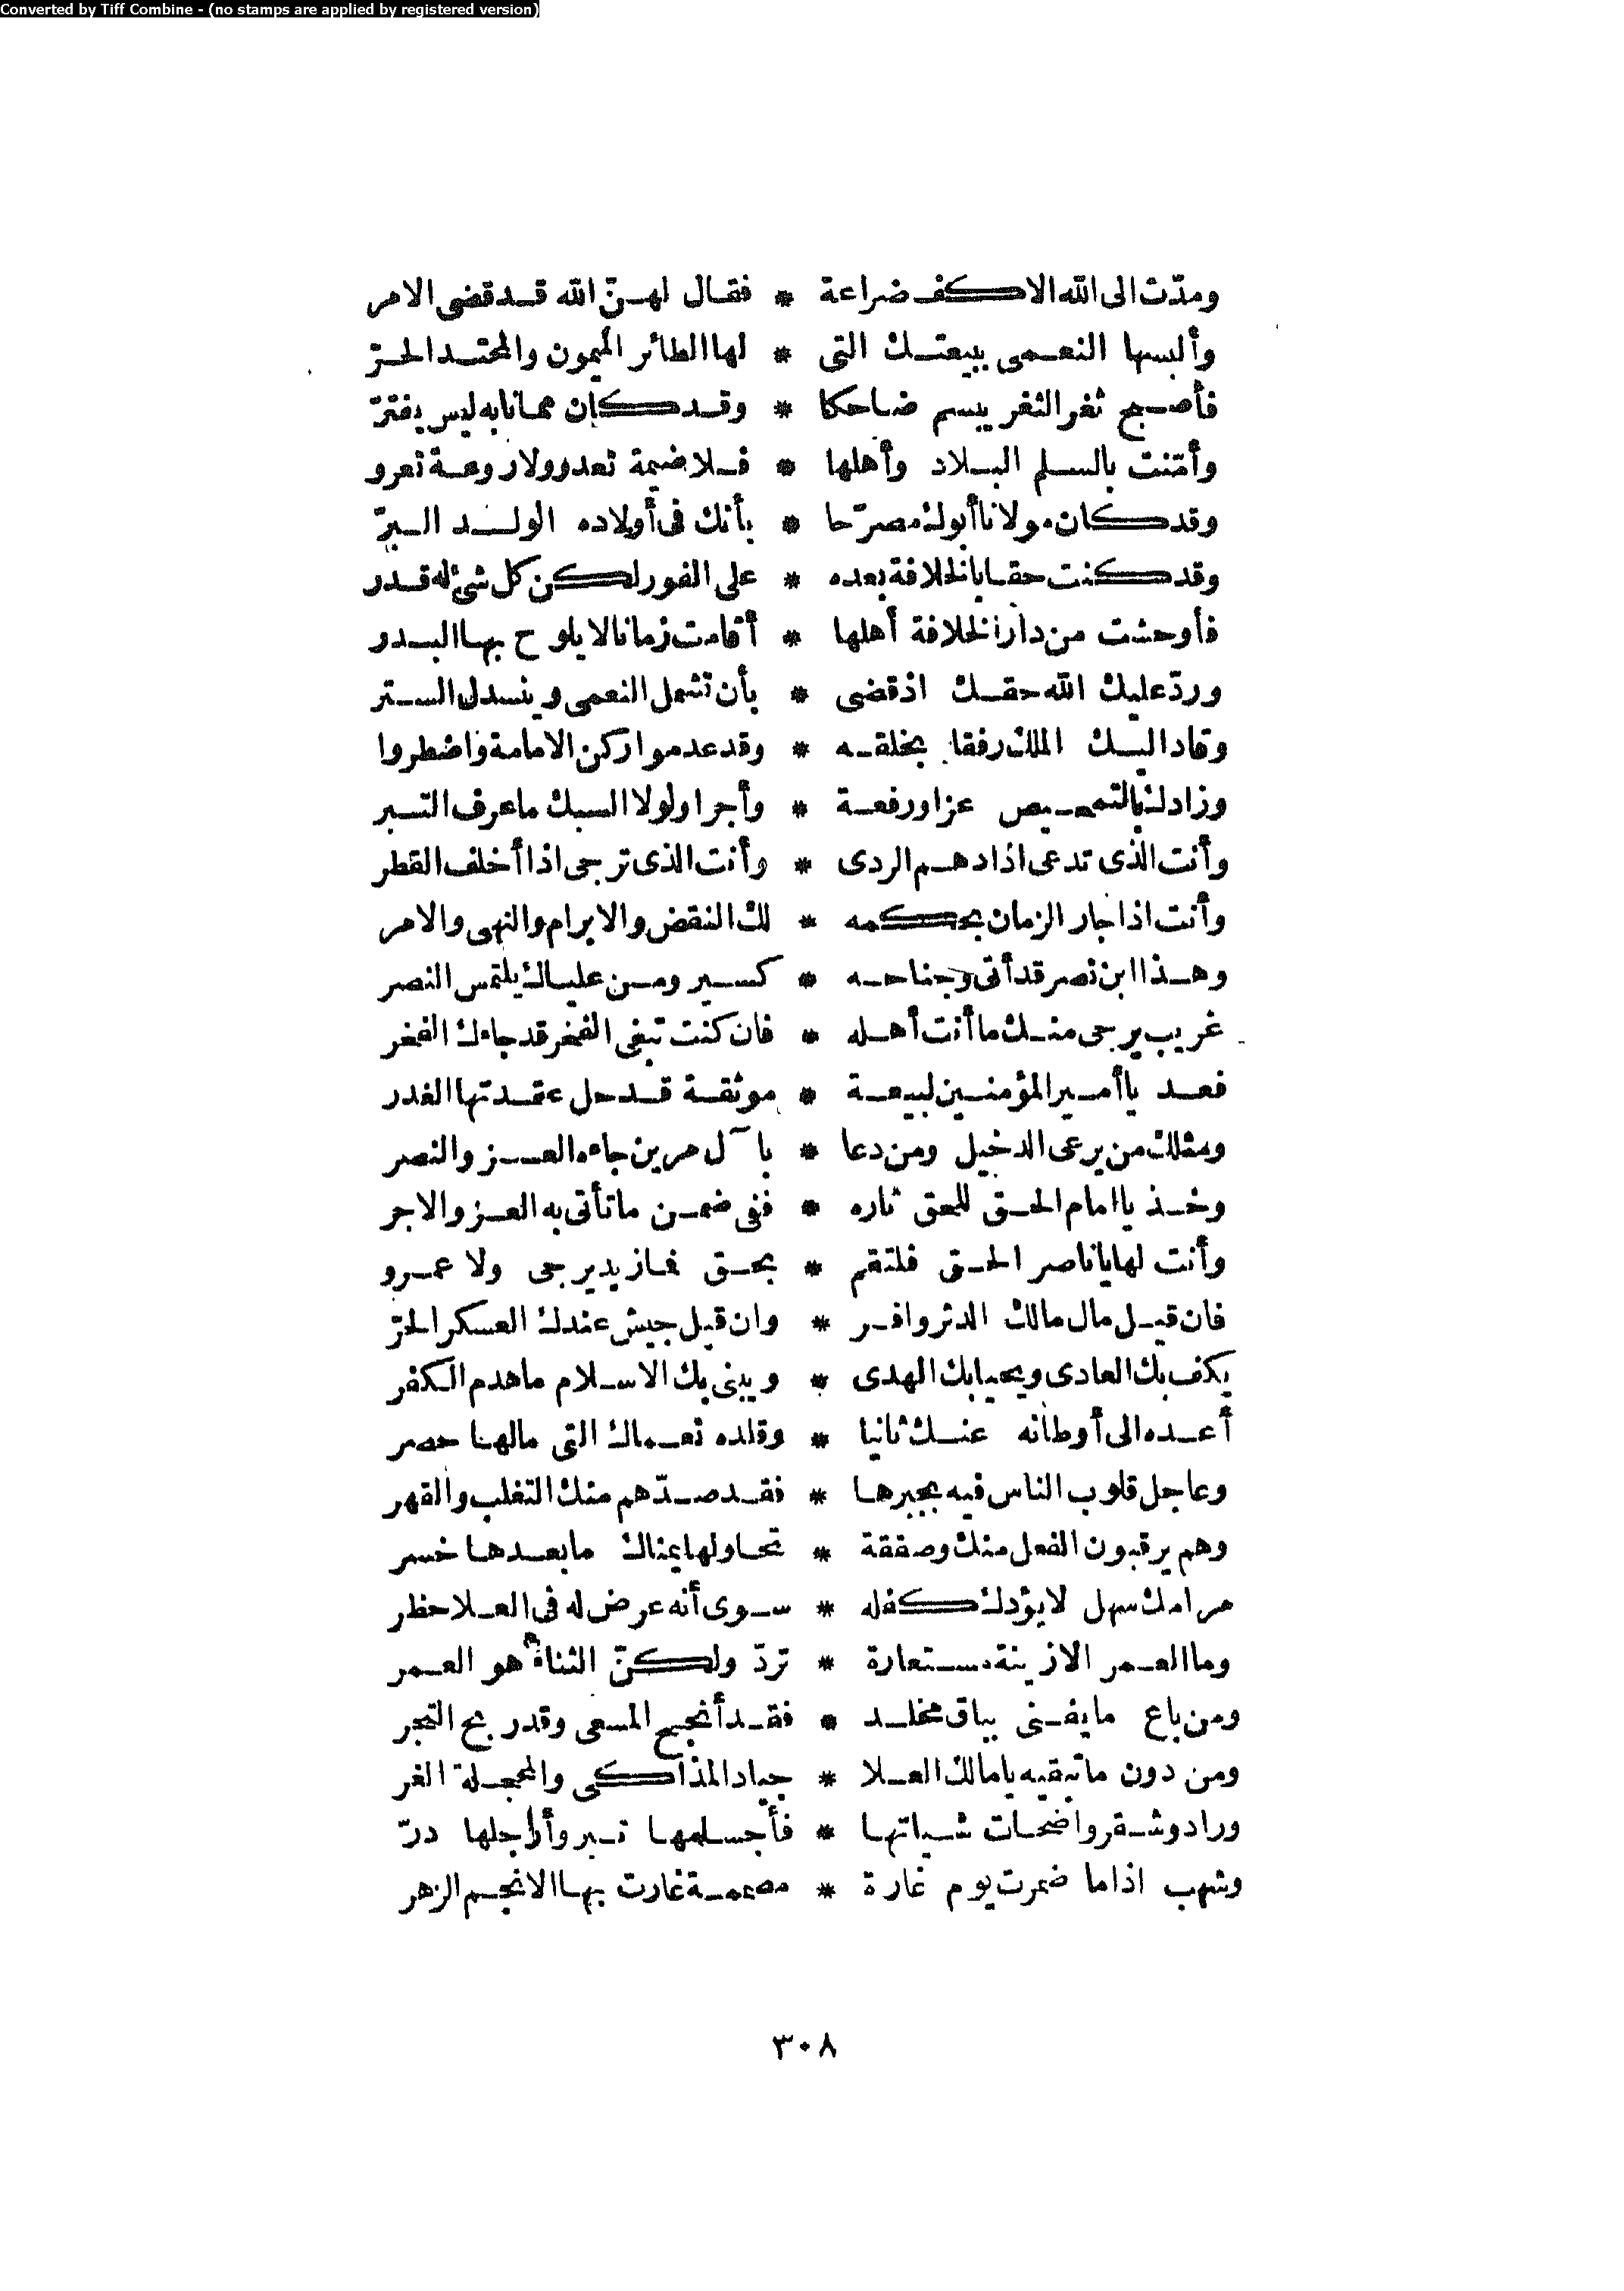 Converted by Tiff Combine - (no stamps are applied by registered version)
ومدّت الى الله الاكف ضراعة * فقال لهنّ الله قد قضى الامر
وألبسها النعمى ببيعتك التى * لها الطائر الميمون والمحتد الحرّ
فأصبح ثغر الثغر يبسم ضاحكا * وقد كان مما نابه ليس يفترّ
وأمّنت بالسلم البلاد وأهلها * فلا ضيمة تعدو ولا روعة تعرو
وقد كان مولانا أبوك مصرّحا * بأنك فى أولاده الولد البرّ
وقد كنت حقا بالخلافة بعده * على الفور لكن كل شئ له قدر
فأوحشت من دار الخلافة أهلها * أقامت زمانا لا يلوح بها البدر
وردّ عليك الله حقك اذ قضى * بأن تشمل النعمى وينسدل الستر
وقاد اليك الملك رفقا بخلقه * وقد عدموا ركن الامامة واضطروا
وزادك بالتمحيص عزا ورفعة * وأجرا ولولا السبك ما عرف التبر
وأنت الذى تدعى اذا دهم الردى * وأنت الذى ترجى اذا أخلف القطر
وأنت اذا جار الزمان بحكمه * لك النقض والابرام والنهى والامر
وهذا ابن نصر قد أتى وجناحه * كسير ومن علياك يلتمس النصر
غريب يرجى منك ما أنت أهله * فان كنت تبغى الفخر قد جاءك الفخر
فعد يا أمير المؤمنين لبيعة * موثقة قد حل عقدتها الغدر
ومثلك من يرعى الدخيل ومن دعا * بآل مرين جاءه العز والنصر
وخذ يا امام الحق للحق ثاره * ففى ضمن ما تأتى به العز والاجر
وأنت لها يا ناصر الحق فلتقم * بحق فما زيد يرجى ولا عمرو
فان قيل مال مالك الدثر وافر * وان قيل جيش عندك العسكر الحرّ
يكف بك العادى ويحيا بك الهدى * ويبنى بك الاسلام ما هدم الكفر
أعده الى أوطانه عنك ثانيا * وقلده نعماك التى مالها حصر
وعاجل قلوب الناس فيه بجبرها * فقد صدّهم منك التغلب والقهر
وهم يرقبون الفعل منك وصفقة * تحاولها يمناك ما بعدها خسر
مرامك سهل لا يؤدك كفله * سوى أنه عرض له فى العلا حظر
وما العمر الا زينة مستعارة * تردّ ولكنّ الثناء هو العمر
ومن باع ما يفنى بباق مخلد * فقد أنجح المسعى وقد ربح التجر
ومن دون ما تبقيه يا مالك العلا * جياد المذاكى والمحجلة الغر
وراد وشقر واضحات شياتها * فأجسامها تبر وأرجلها درّ
وشهب اذا ما ضمرت يوم غارة * مصممة غارت بها الانجم الزهر
٣٠٨